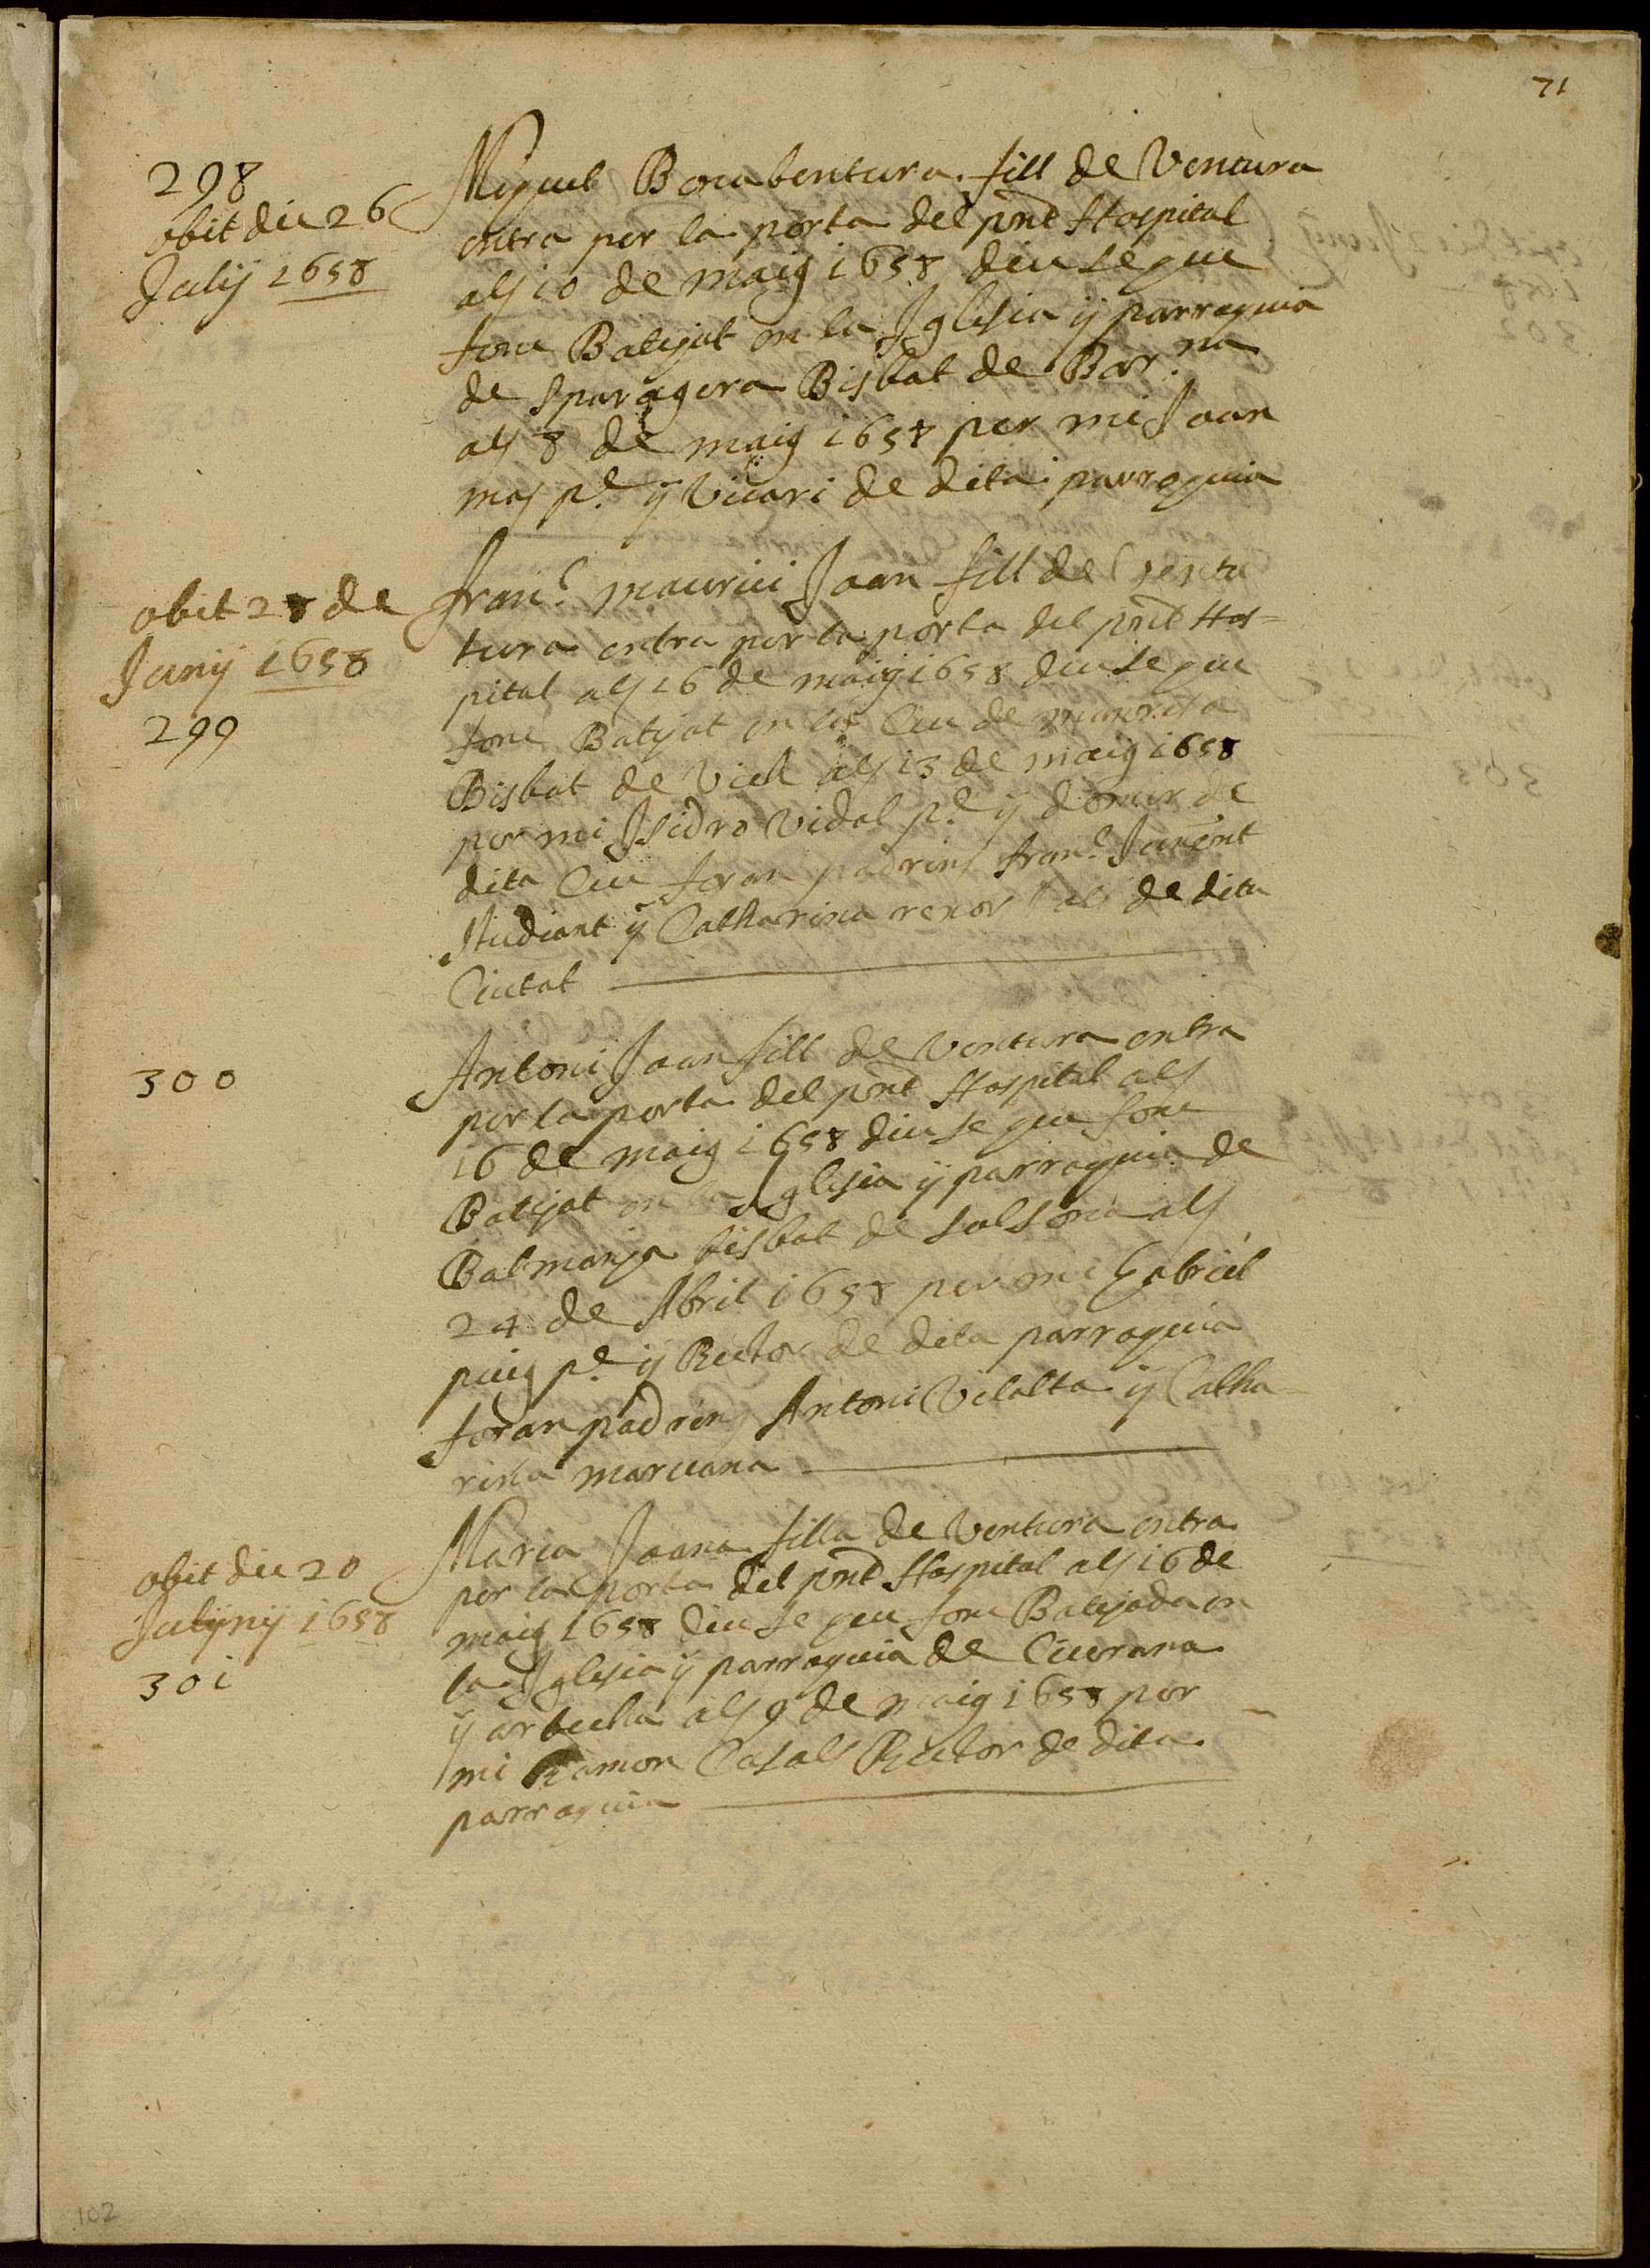 71
298
obit die 26
Julij 1658
Miquel Bonabentura fill de Ventura
entra per la porta del pnt Hospital
als 10 de maig 1658 diuse que
fonc Batejat en la Iglesia ÿ parroquia
de Sparagera Bisbat de Bar.na
als 8 de maig 1658 per mi Joan
mas p.e ÿ Vicari de dita parroquia
obit 28 de
Junij 1658
299
Fran.c maurici Joan fill de Ventu
tura entra per la porta del pnt Hos=
pital als 16 de maig 1658 diuse que
fonc Batejat en la Ceu de manresa
Bisbat de Vich als 13 de maig 1658
per mi Isidro Vidal p.e ÿ domer de
dita Ceu foran padrins fran.c
studiant ÿ Catharina de dita
Ciutat
300
Antoni Joan fill de Ventura entra
per la porta del pnt Hospital als
16 de maig 1658 diuse que fonc
Batejat en la Iglesia ÿ parroquia de
Balmanÿa bisbat de Solsona als
24 de Abril 1658 per mi Gabriel
puig p.e ÿ Rector de dita parroquia
foran padrins Antoni Vilalta ÿ Catha
rina marcuana
obit die 20
Julijnij 1658
301
Maria Joana filla de Ventura entra
per la porta del pnt Hospital als 16 de
maig 1658 diuse que fonc Batejada en
la Iglesia ÿ parroquia de Ciurana
ÿ arbecha als 9 de maig 1658 per
mi Ramon Casals Rector de dita
parroquia
102